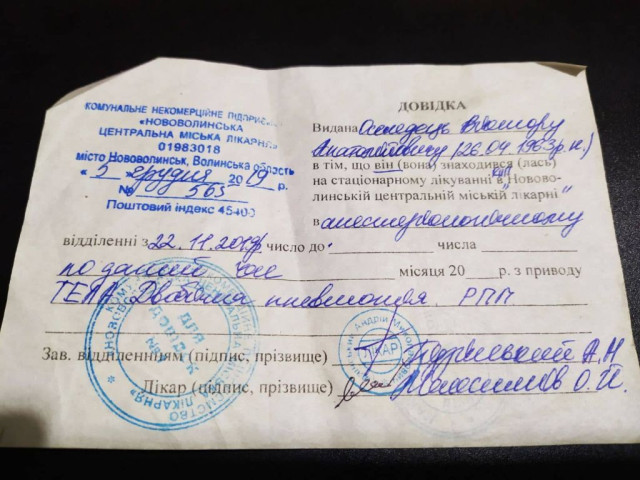 КОМУНАЛЬНЕ НЕКОМЕРЦІЙНЕ ПІДПРИЄ
«НОВОВОЛИНСЬКА
ЦЕНТРАЛЬНА МІСЬКА ЛІКАРНЯ»
01983018
місто Нововолинськ, Волинська область
« 5 » грудня 2019 р.
№ 565
Поштовий індекс 45400
ДОВІДКА
Видана Віктору
Анатолійовичу (26.04.1963р.н.)
в тім, що він (вона) знаходився (лась)
на стаціонарному лікуванні в КНП "Нововолинській
центральній міській лікарні"
в анестезіологічному
відділенні з 22.11.2019р число до числа
по даний час місяця 20 р. з приводу
ТЕЛА. Двобічна пневмонія.
Зав. відділенням (підпис, прізвище) А.М
Лікар (підпис, прізвище)
ДЛЯ
ДОВІДОК
ЛІКАР